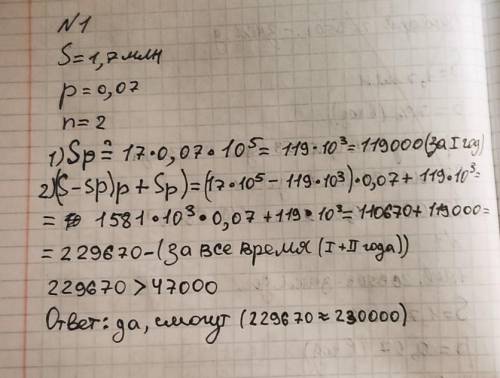 N1
S=1,7 млн
p=0,07
n=2
1) Sp = 17•0,07•10⁵= 119•10³=119000(за I год)
2)(S-Sp)p+Sp)=(17•10⁵-119•10³)•0,07+119•10³=
= 1581•10³•0,07+119•10³=110670+119000=
=229670-(за все время (I+II года))
229670>47000
Ответ: да, смогут (229670≈230000)